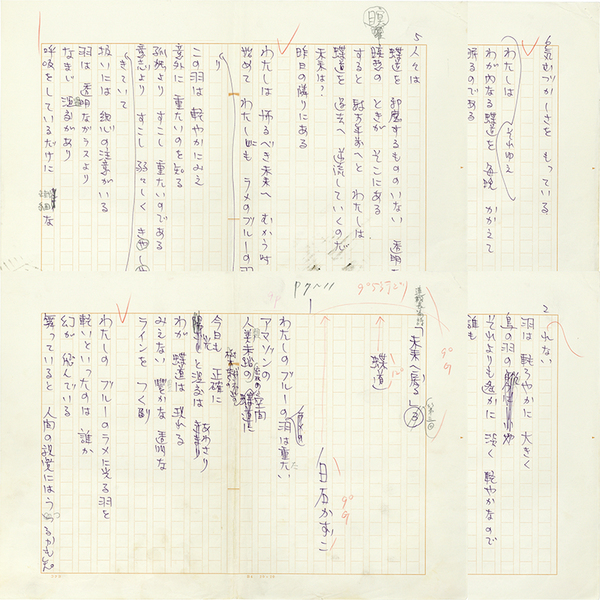 瞑
6 気むづかしさを もっている
わたしは それゆえ
わが内なる蝶道を 毎晩 かかえて
眠るのである
5 人々は
蝶道を 邪魔するもののない 透明
瞑想の ときが そこにある
すると 数万年前へと わたしは
蝶道を 過去へ 逆流していくのだ
未来は?
昨日の隣りにある
わたしは 怖るべき未来へ むかう時
始めて わたしも ラメのブルーの羽
り
この羽は 軽やかにみえ
意外に 重たいのを 知る
孤独より すこし 重たいのである
意志より すこし 弱々しく
きていて
扱いには 細心の注意がいる
羽は 透明なガラスより
なまじ 湿りがあり
呼吸をしているだけに な
2 れない
羽は 軽ろやかに 大きく
鳥の羽の
それよりも遙かに 淡く 軽やかなので
誰も
P7〜11
9°
「未来へ
蝶道
白石かずこ
9°
わたしのブルーの 羽は重たい
アマゾンの 空間
人类未踏の 蝶道に
今日も 正確に
と 湿るは あわさり
わが 蝶道は 現れる
みえない 豊かな 透明な
ラインを つくる
わたしの ブルーのラメに光る羽を
軽いといったのは 誰か
幻が 飛んでいる
舞っていると 人間の視覚には うつるかも知